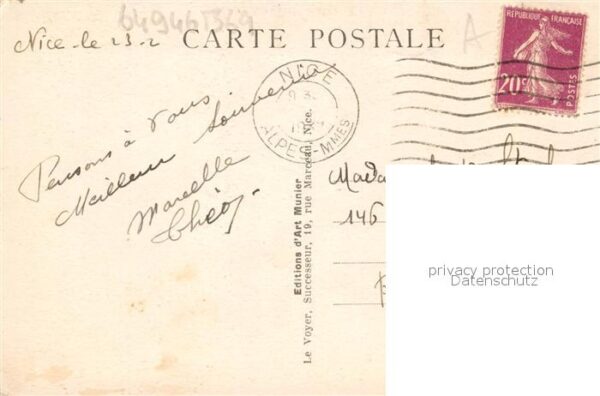 649465369
Nice-le 23-2
CARTE POSTALE
A
REPUBLIQUE FRANÇAISE
20c
POSTES
NICE
ALPES MMES
Pensons à vous
Meilleur Souvenir
Marcelle
Editions d'Art Munier
Le Voyer, Successeur, 19, rue Marceau, Nice.
Mada
146
privacy protection
Datenschutz